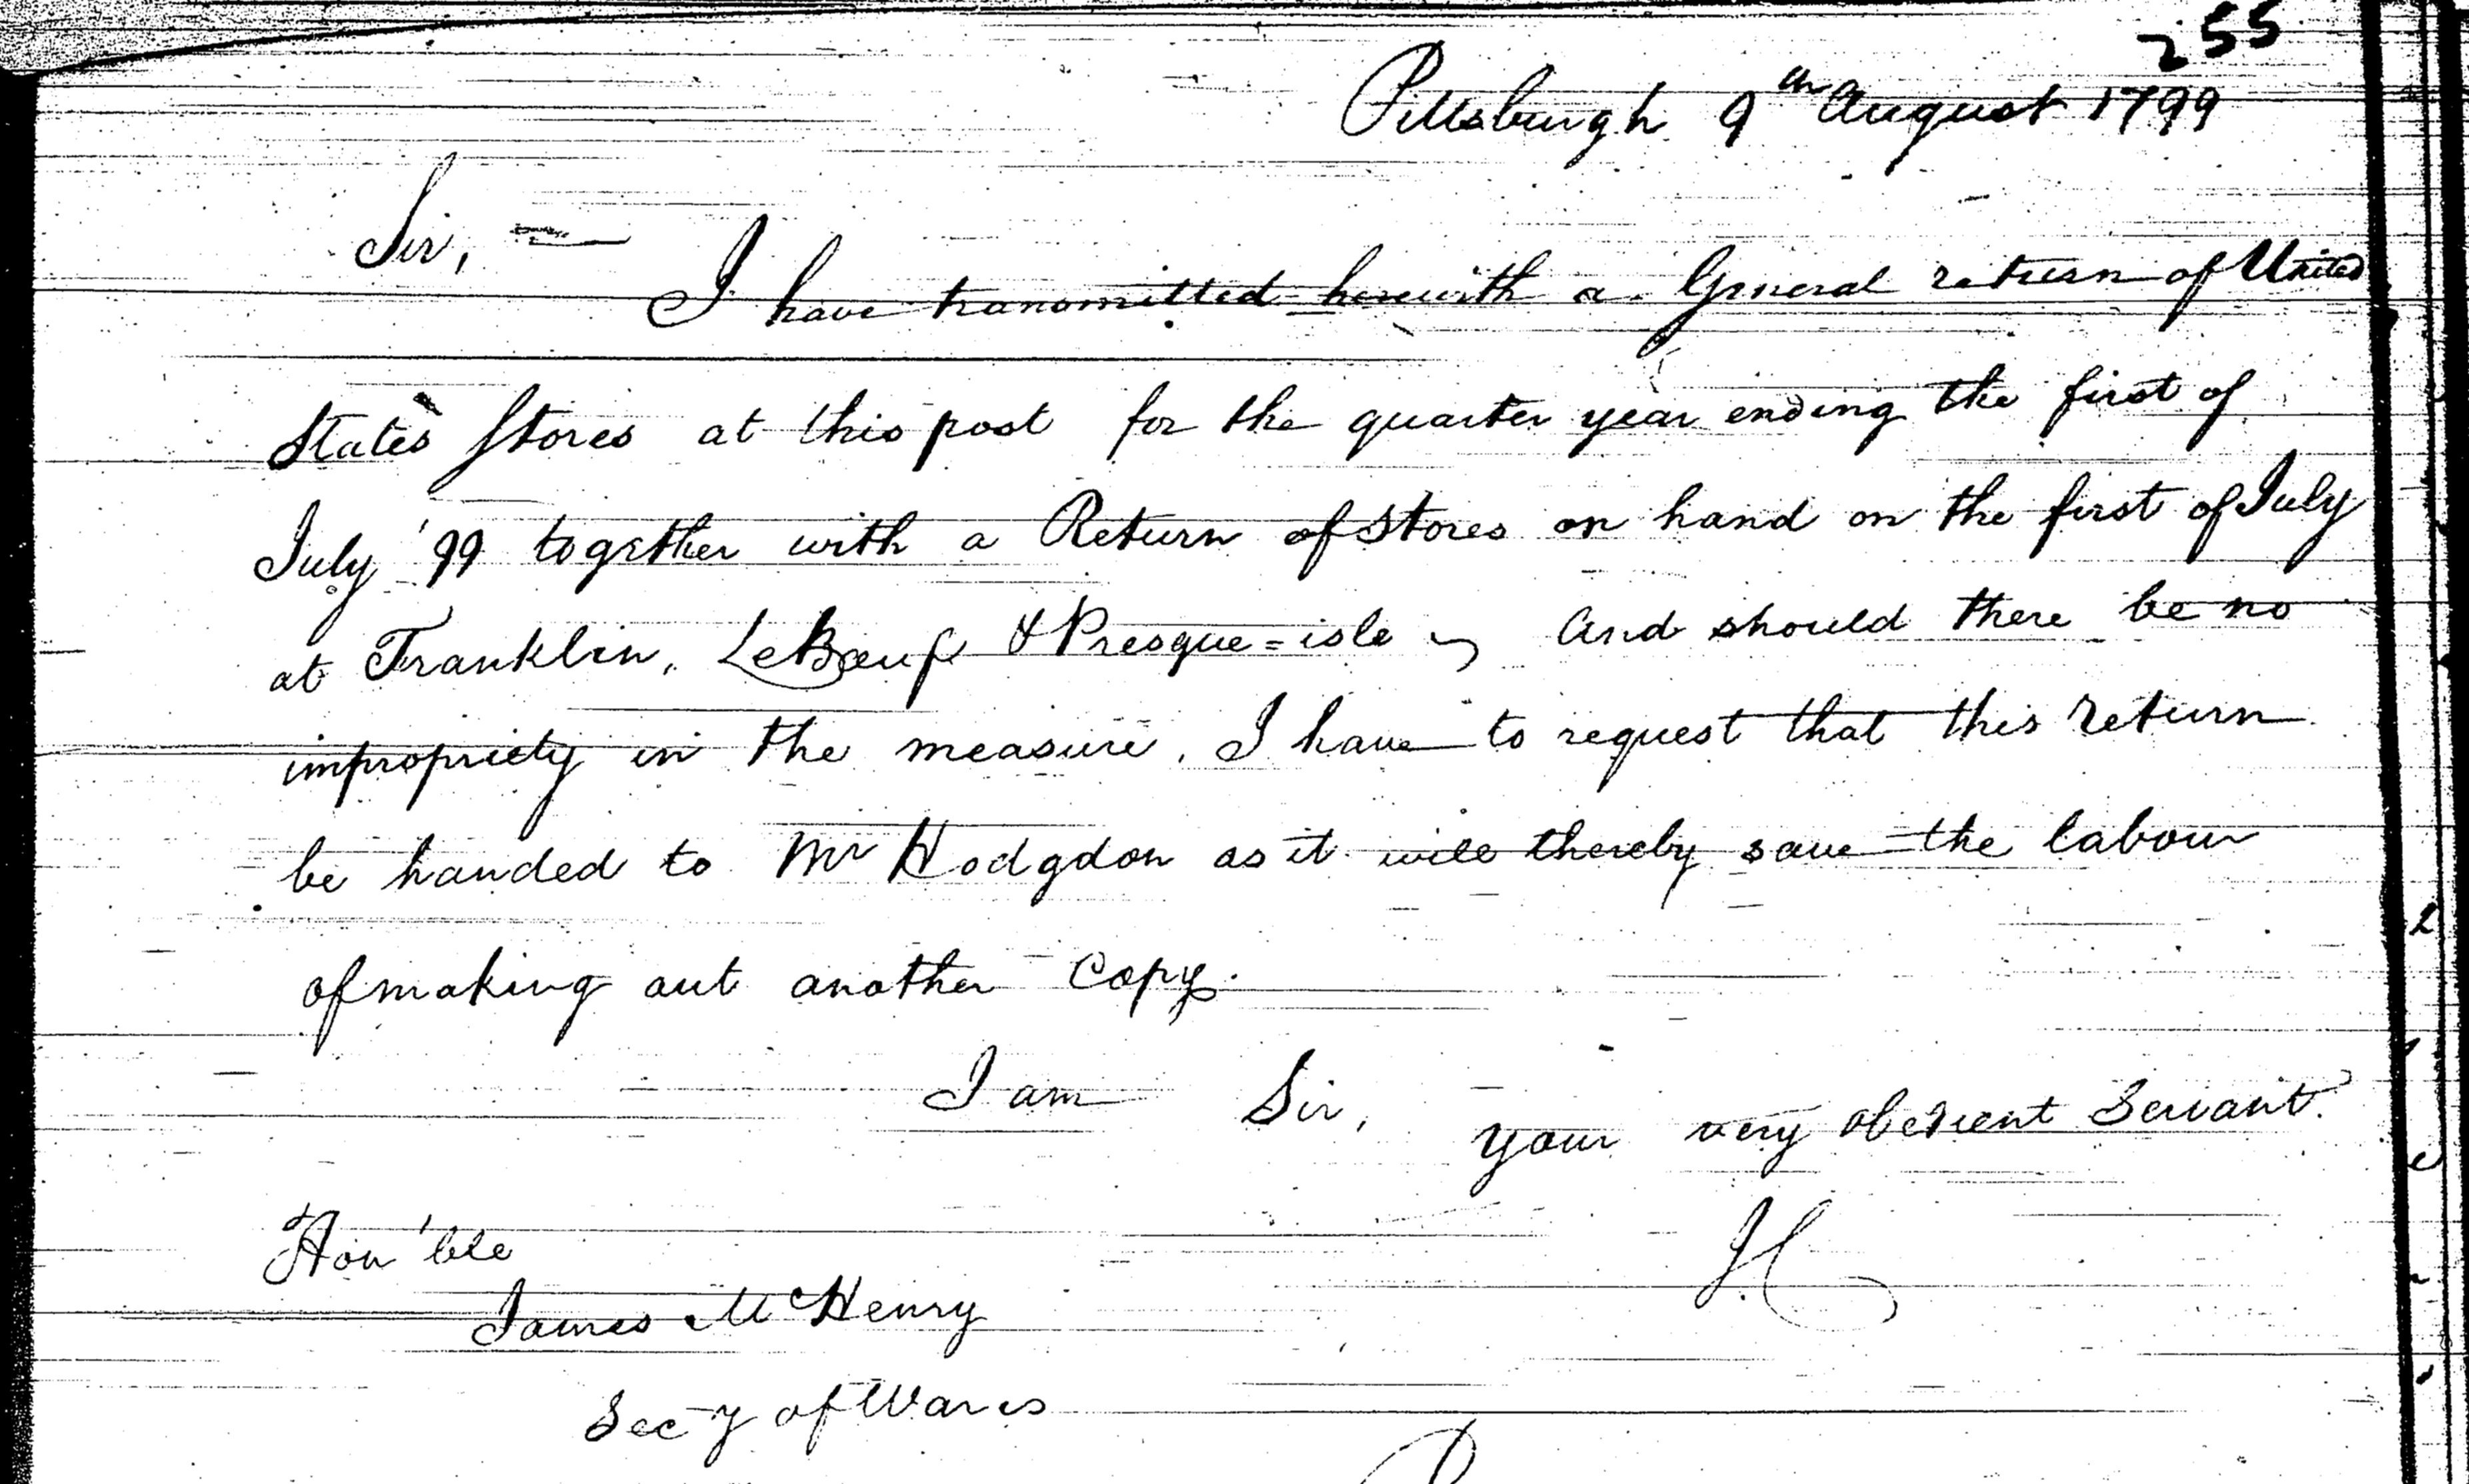 255
Pittsburgh 9th August 1799
Sir,
I have transmitted herewith a General return of United
States Stores at this post for the quarter year ending the first of
July '99 together with a Return of Stores on hand on the first of July
at Franklin, LeBœuf & Presque=isle And should there be no
impropriety in the measure, I have to request that this return
be handed to Mr Hodgdon as it will thereby save the labour
of making out another Copy.
I am Sir, your very obedient Servant.
Hon'ble
James McHenry
Secy of War